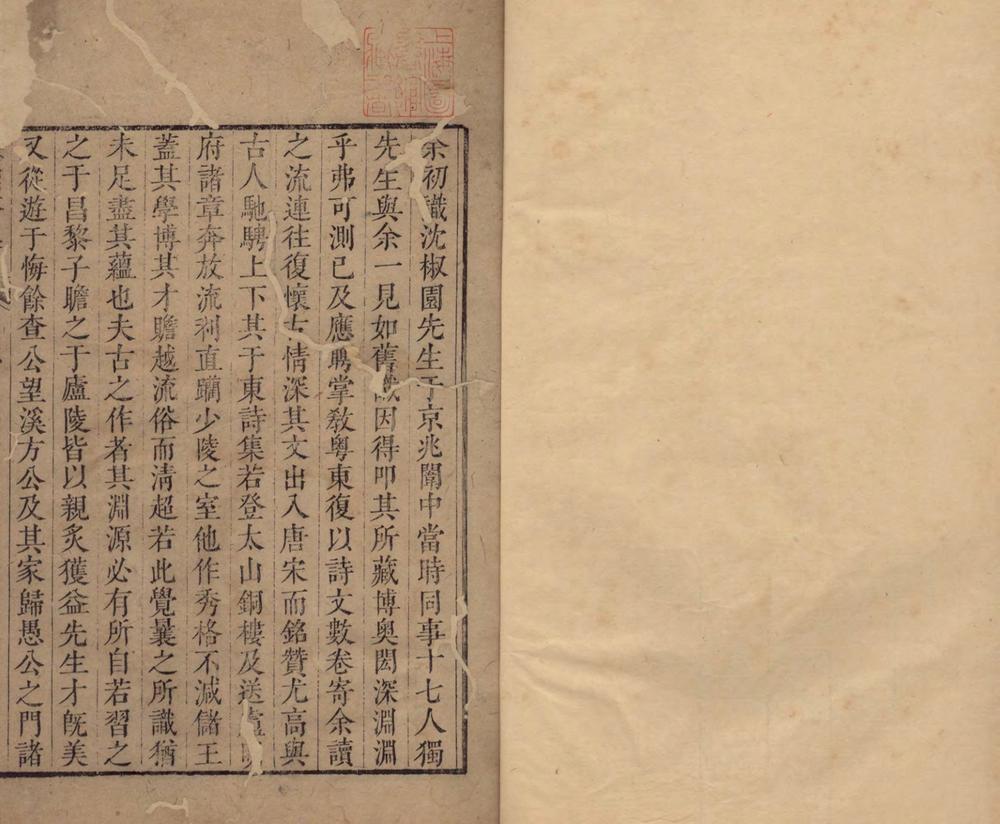 余初識沈椒園先生于京兆闈中當時同事十七人獨
先生與余一見如舊識因得叩其所藏博奧閎深淵淵
乎弗可測已及應聘掌敎粵東復以詩文數卷寄余讀
之流連往復懷古情深其文出入唐宋而銘贊尤高與
古人馳騁上下其于東詩集若登太山銅樓及送盧
府諸章奔放流利直躪少陵之室他作秀格不減儲王
蓋其學博其才贍越流俗而淸超若此覺曩之所識猶
未足盡其蘊也夫古之作者其淵源必有所自若習之
之于昌黎子瞻之于廬陵皆以親炙獲益先生才旣美
又從遊于悔餘查公望溪方公及其家歸愚公之門諸